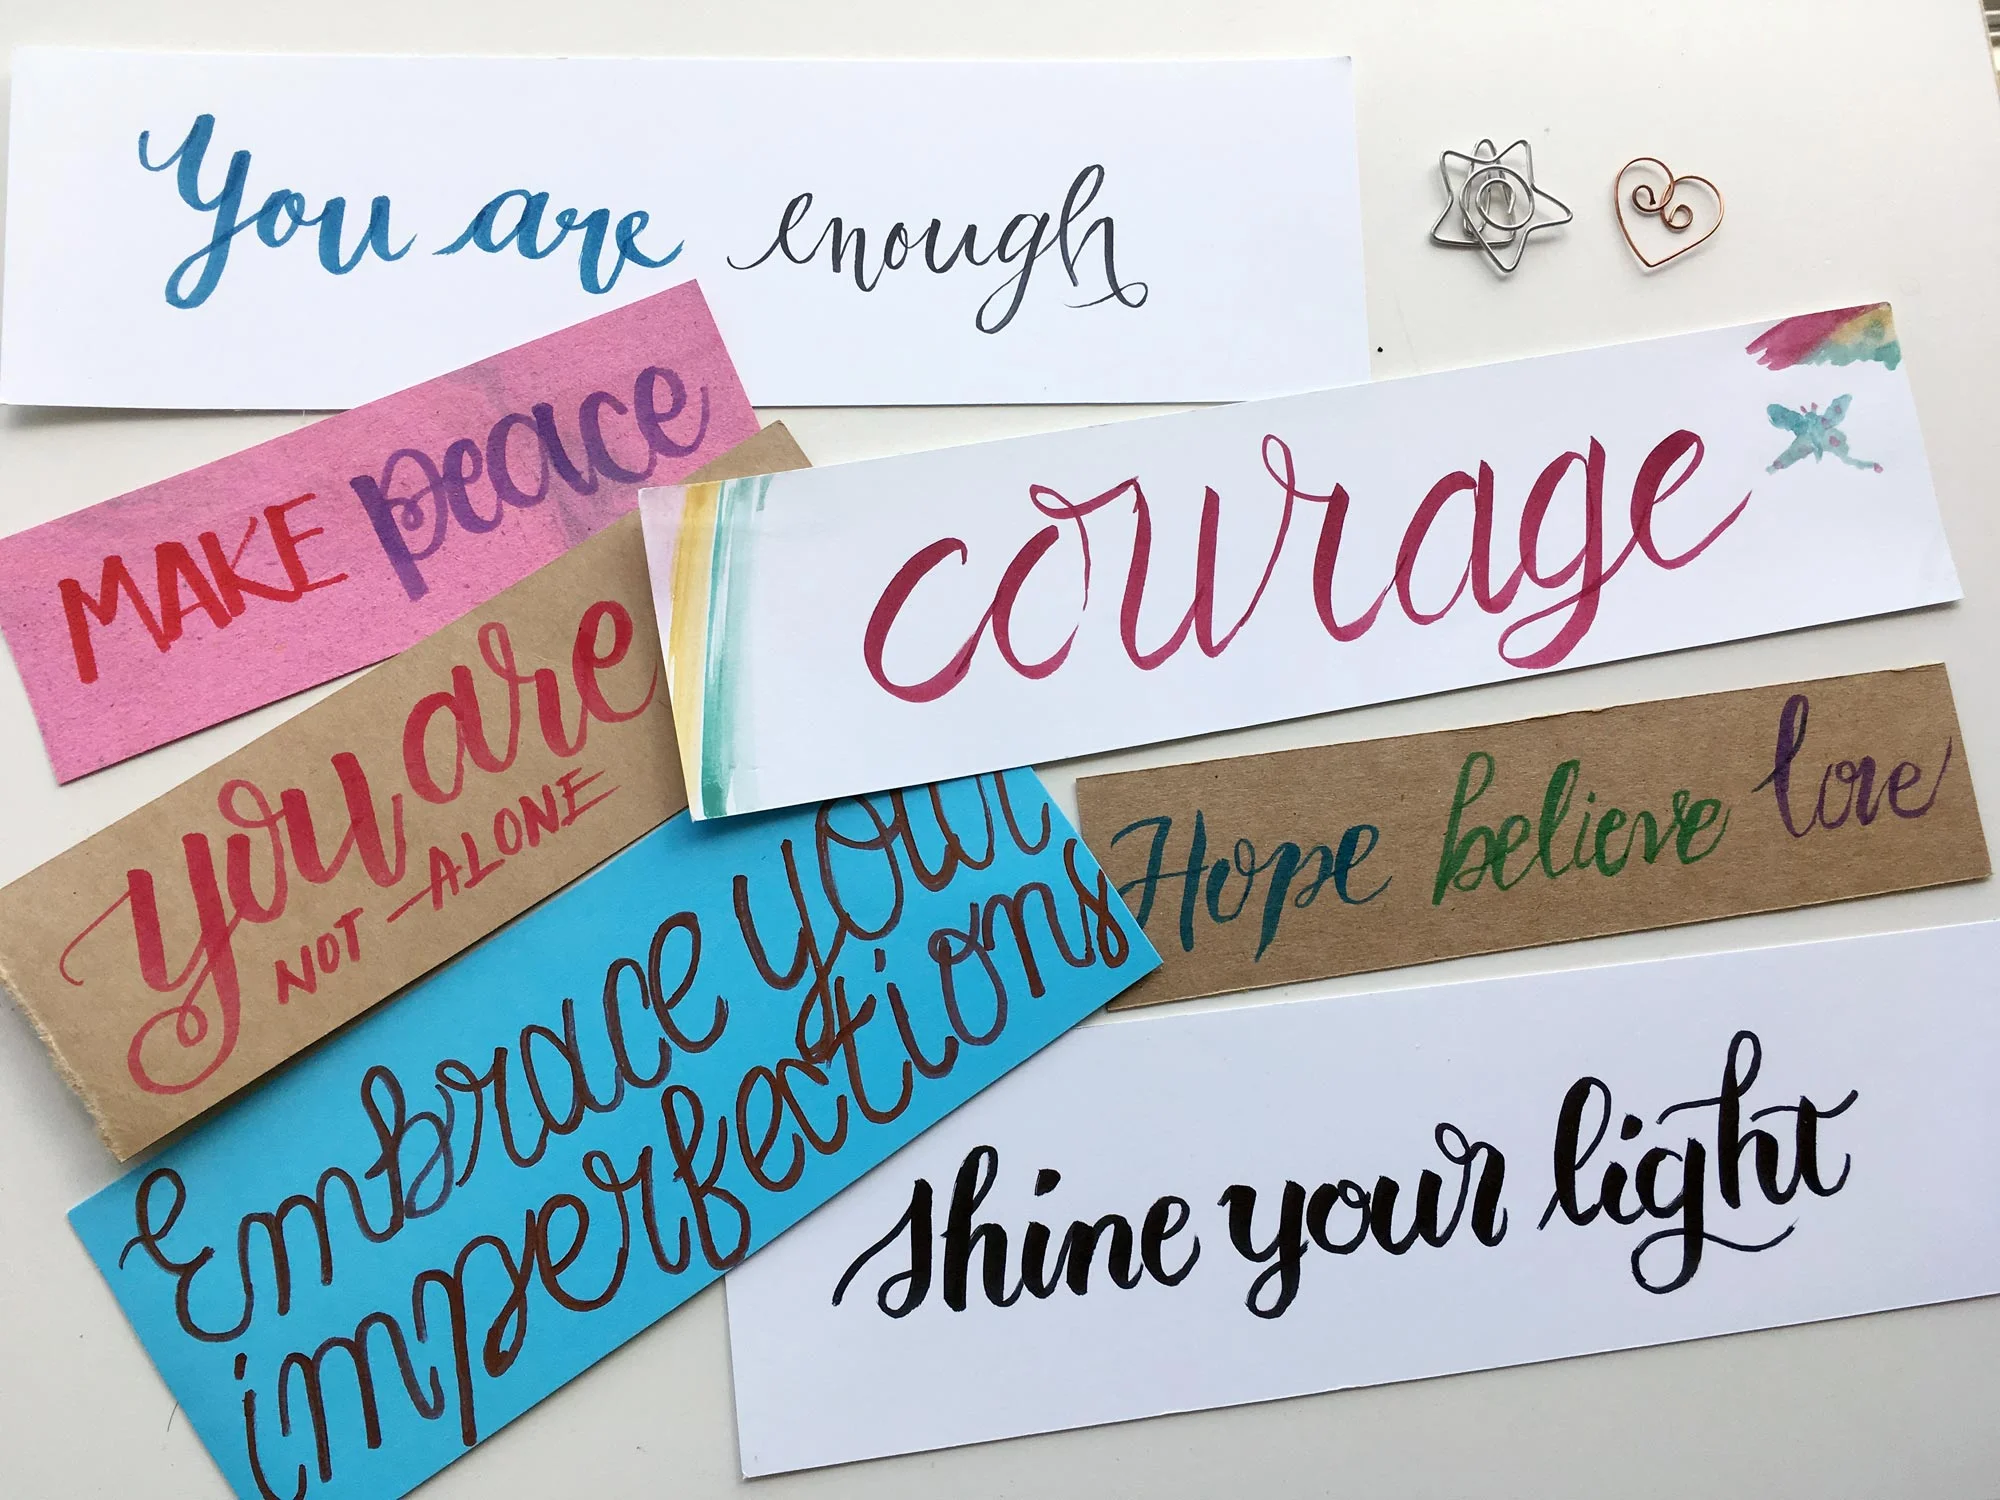 You are enough
MAKE peace
courage
you are
NOT ALONE
Hope believe love
Embrace your
imperfections
shine your light